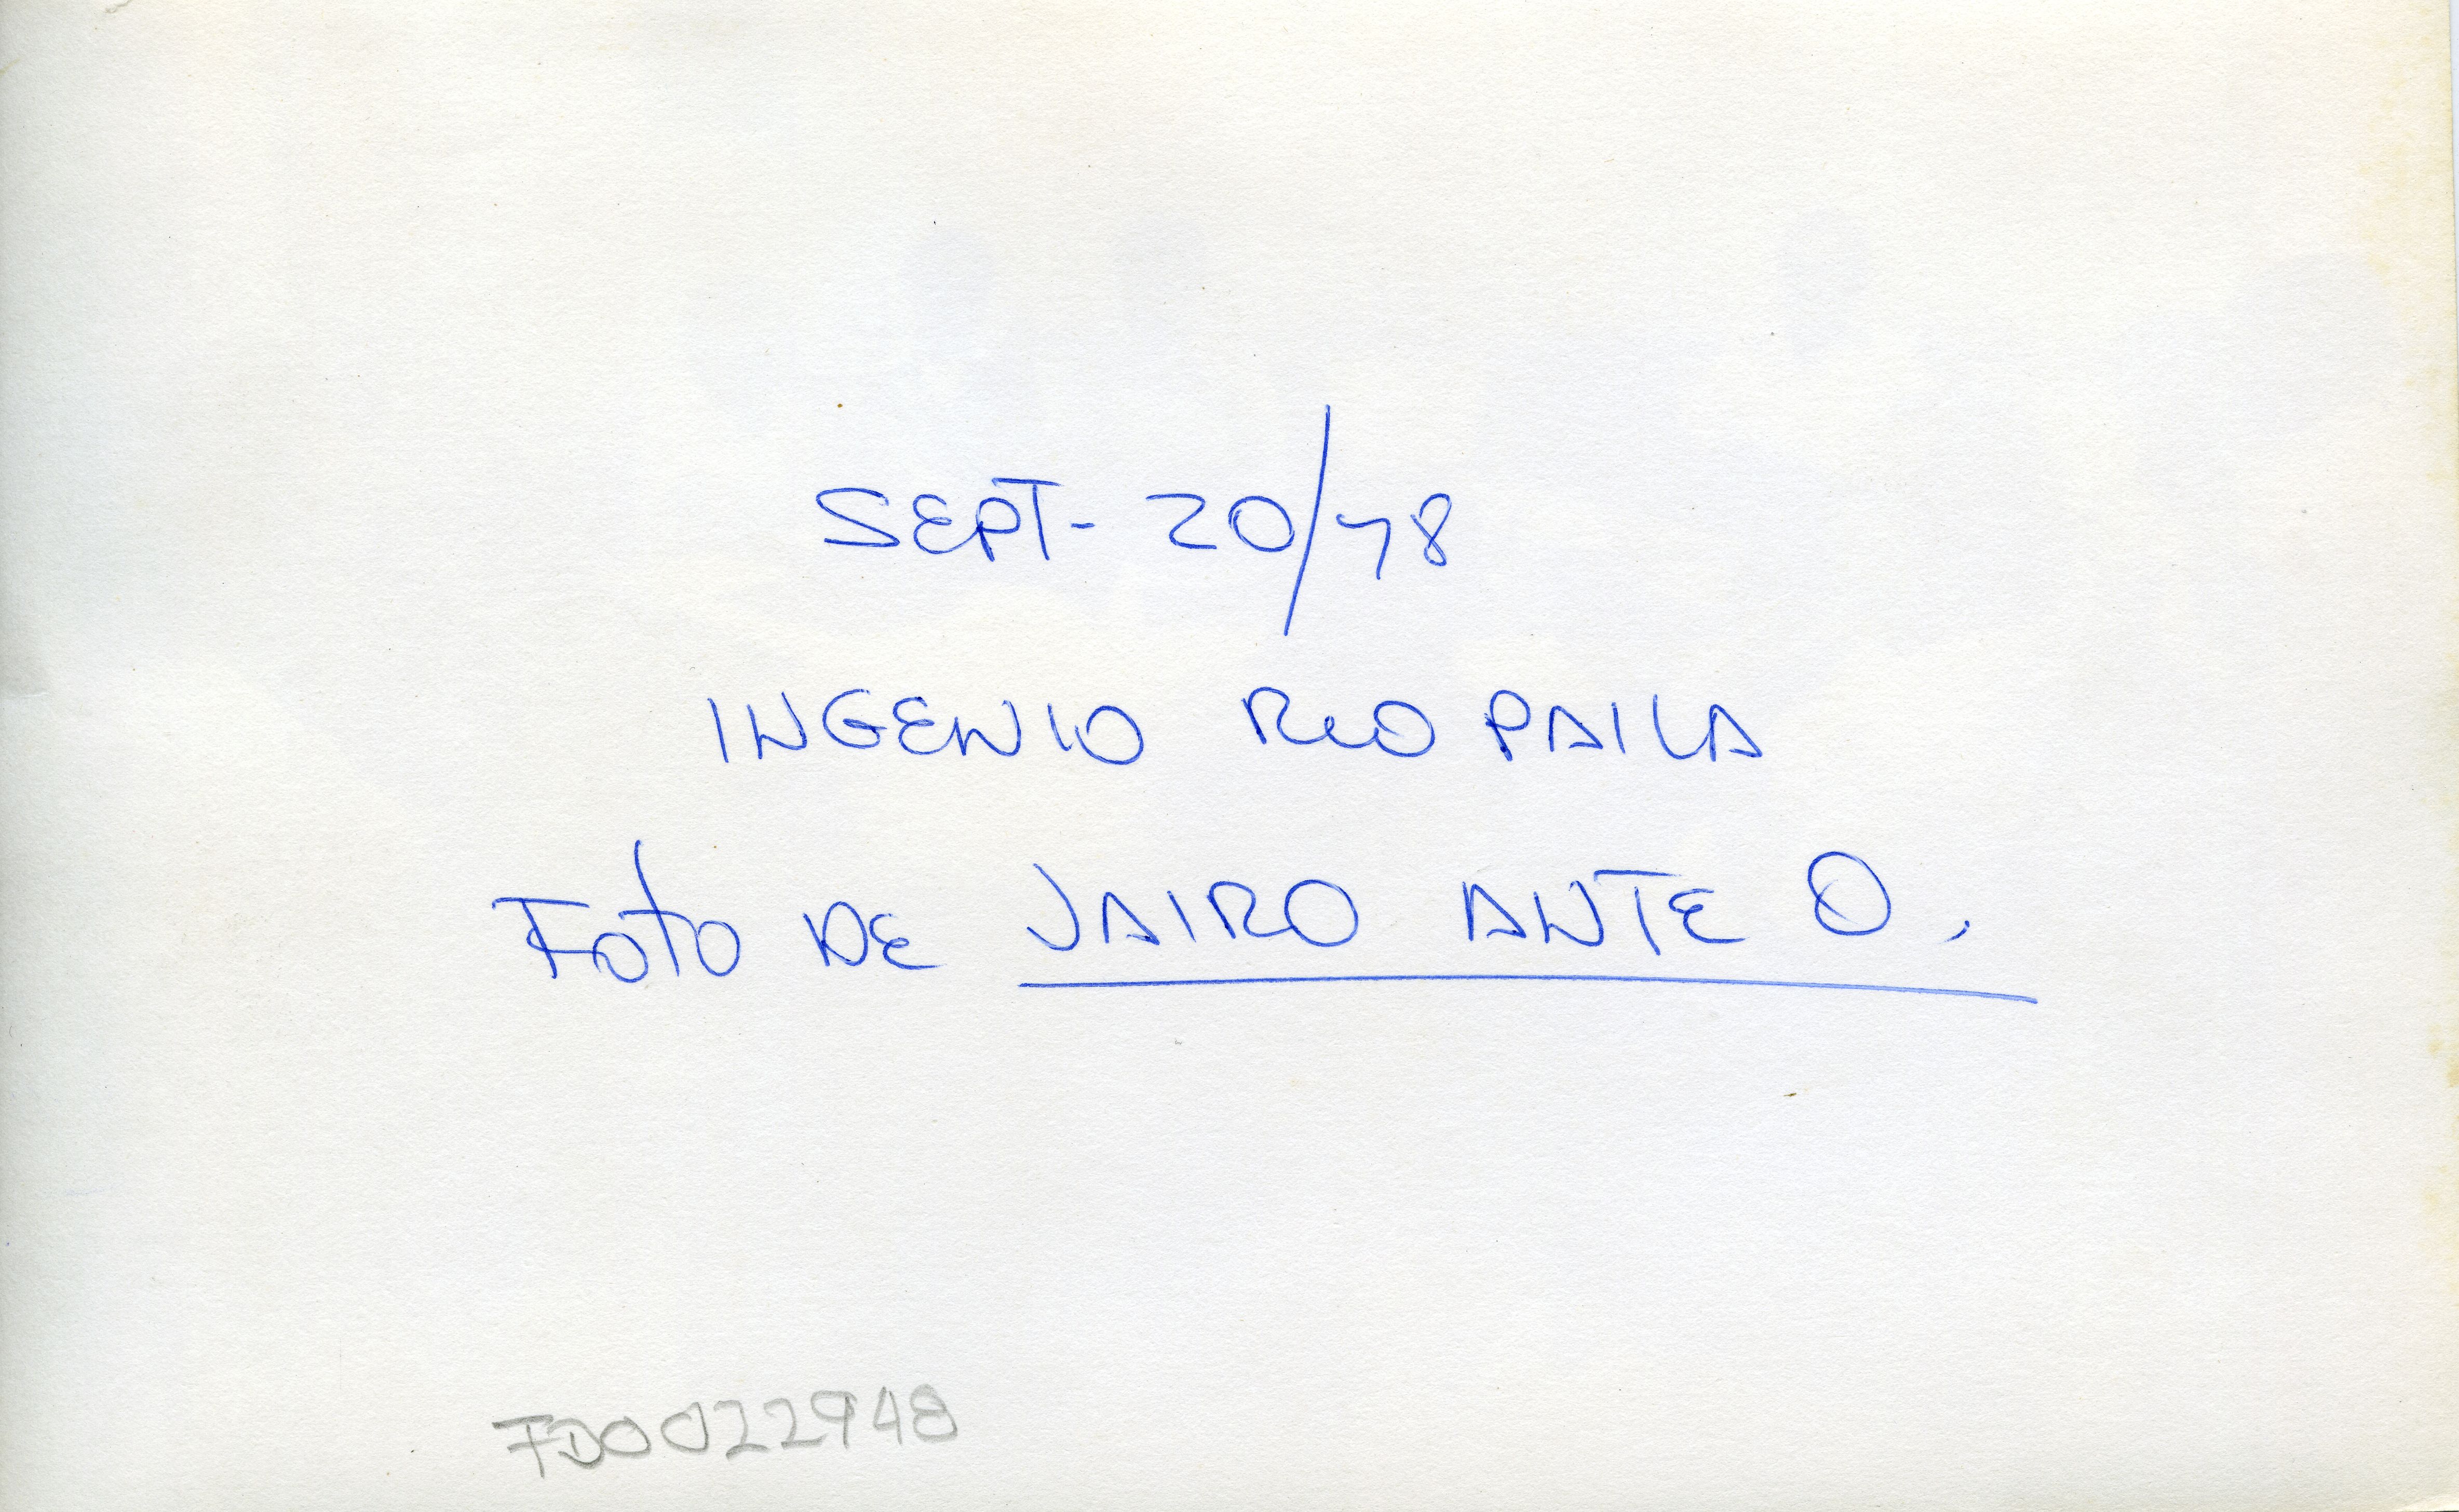 SEPT- 20/78
INGENIO RIO PAILA
FOTO DE JAIRO ANTE O.
FD0022948